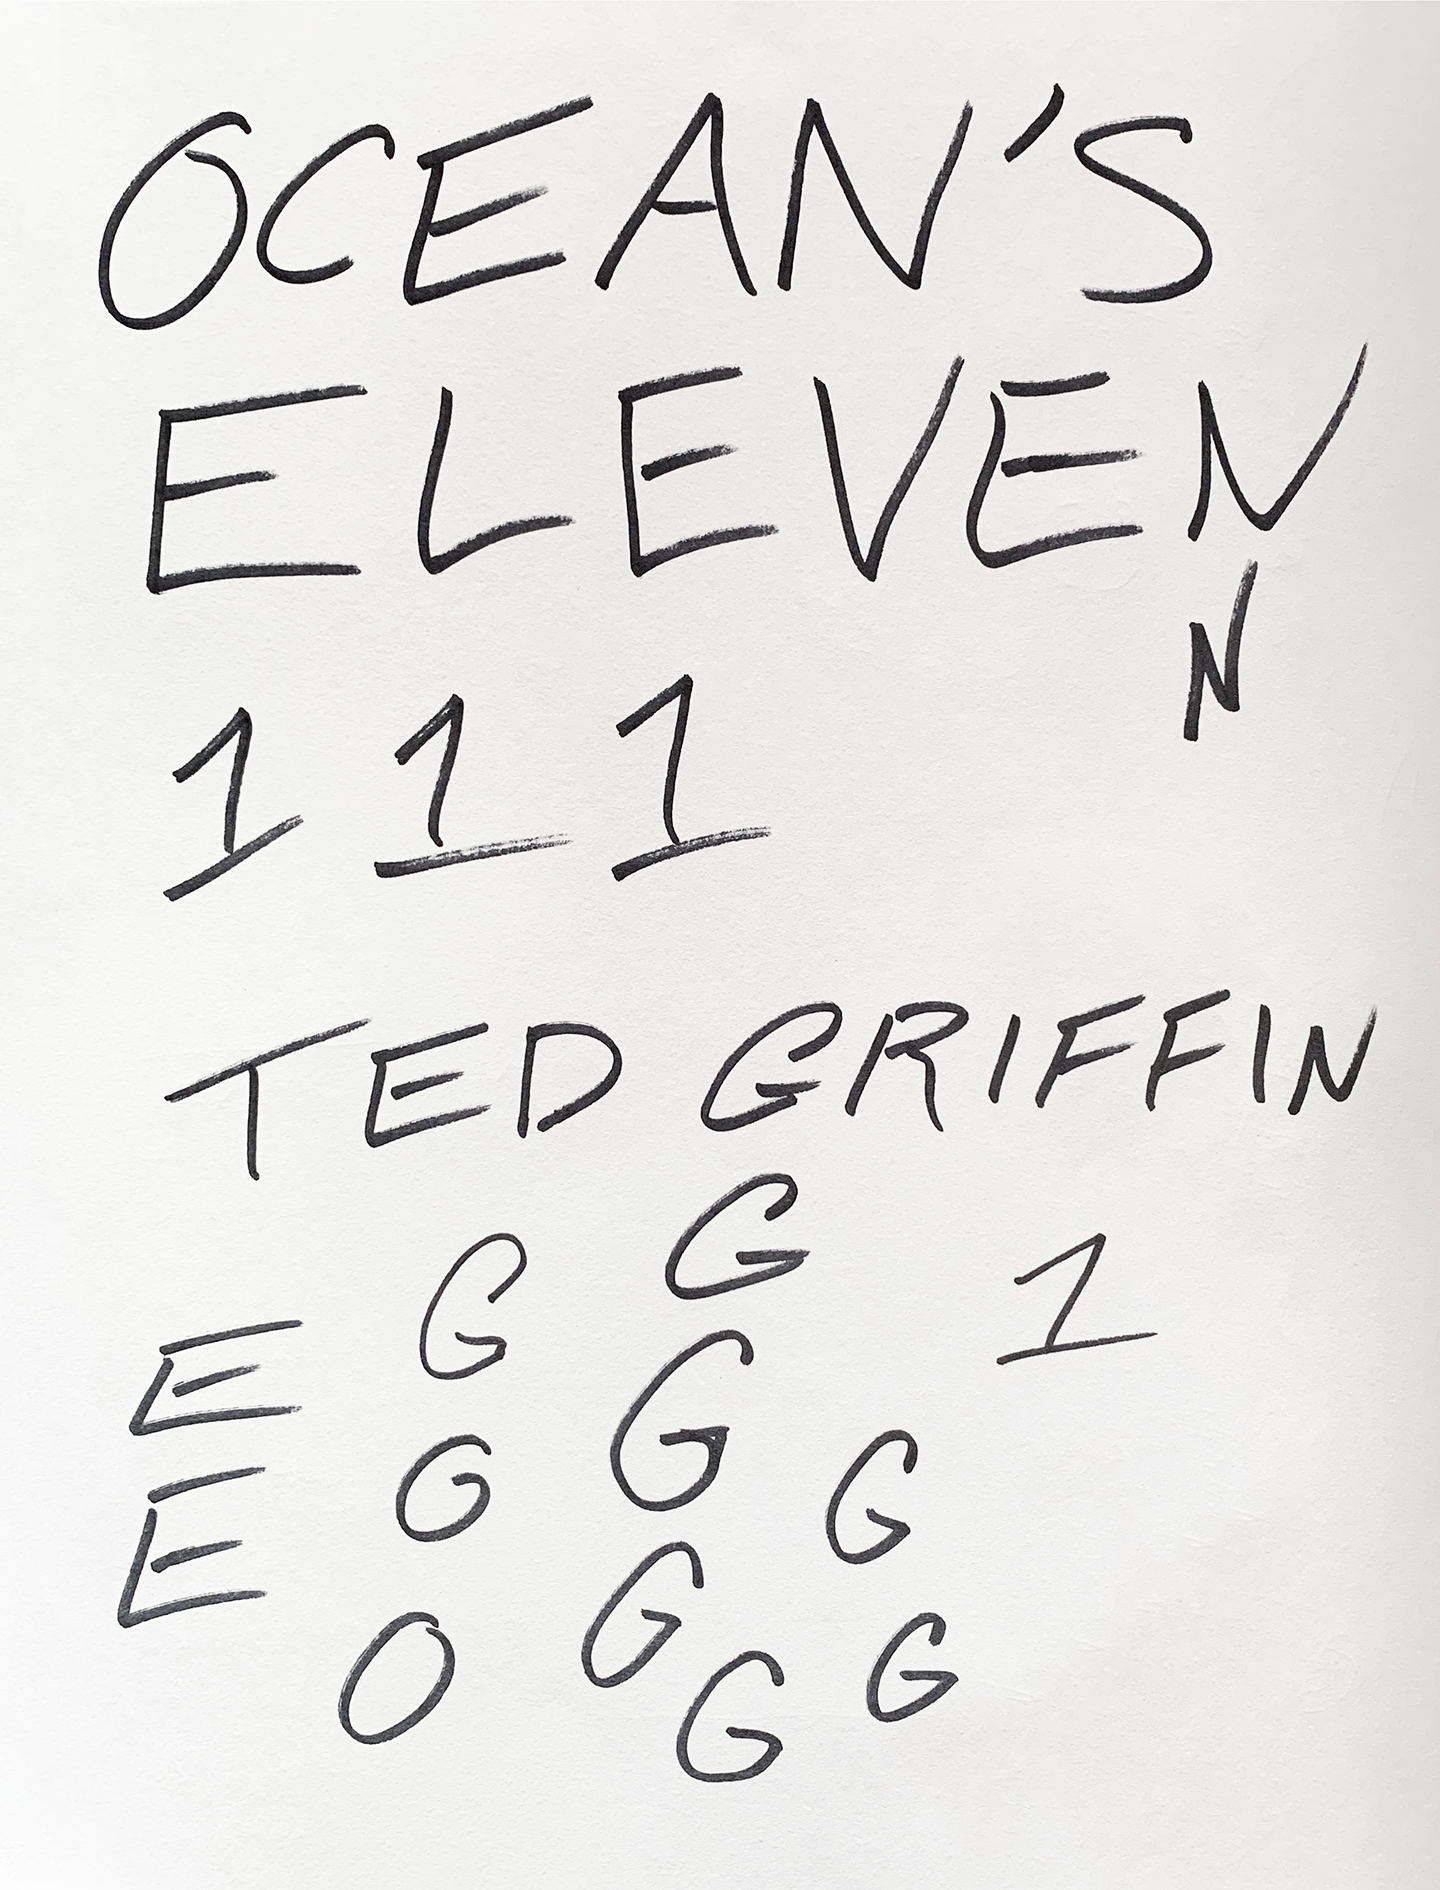 OCEAN'S
ELEVEN
N
1 1 1
TED GRIFFIN
G
G 1
E
G
G G
E
G
O G
G